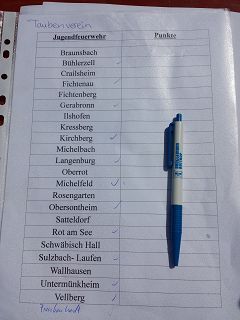 Taubenverein
Jugendfeuerwehr Punkte
Braunsbach
Bühlerzell
Crailsheim
Fichtenau
Fichtenberg
Gerabronn
Ilshofen
Kressberg
Kirchberg
Michelbach
Langenburg
Oberrot
Michelfeld
Rosengarten
Obersontheim
Satteldorf
Rot am See
Schwäbisch Hall
Sulzbach- Laufen
Wallhausen
Untermünkheim
Vellberg